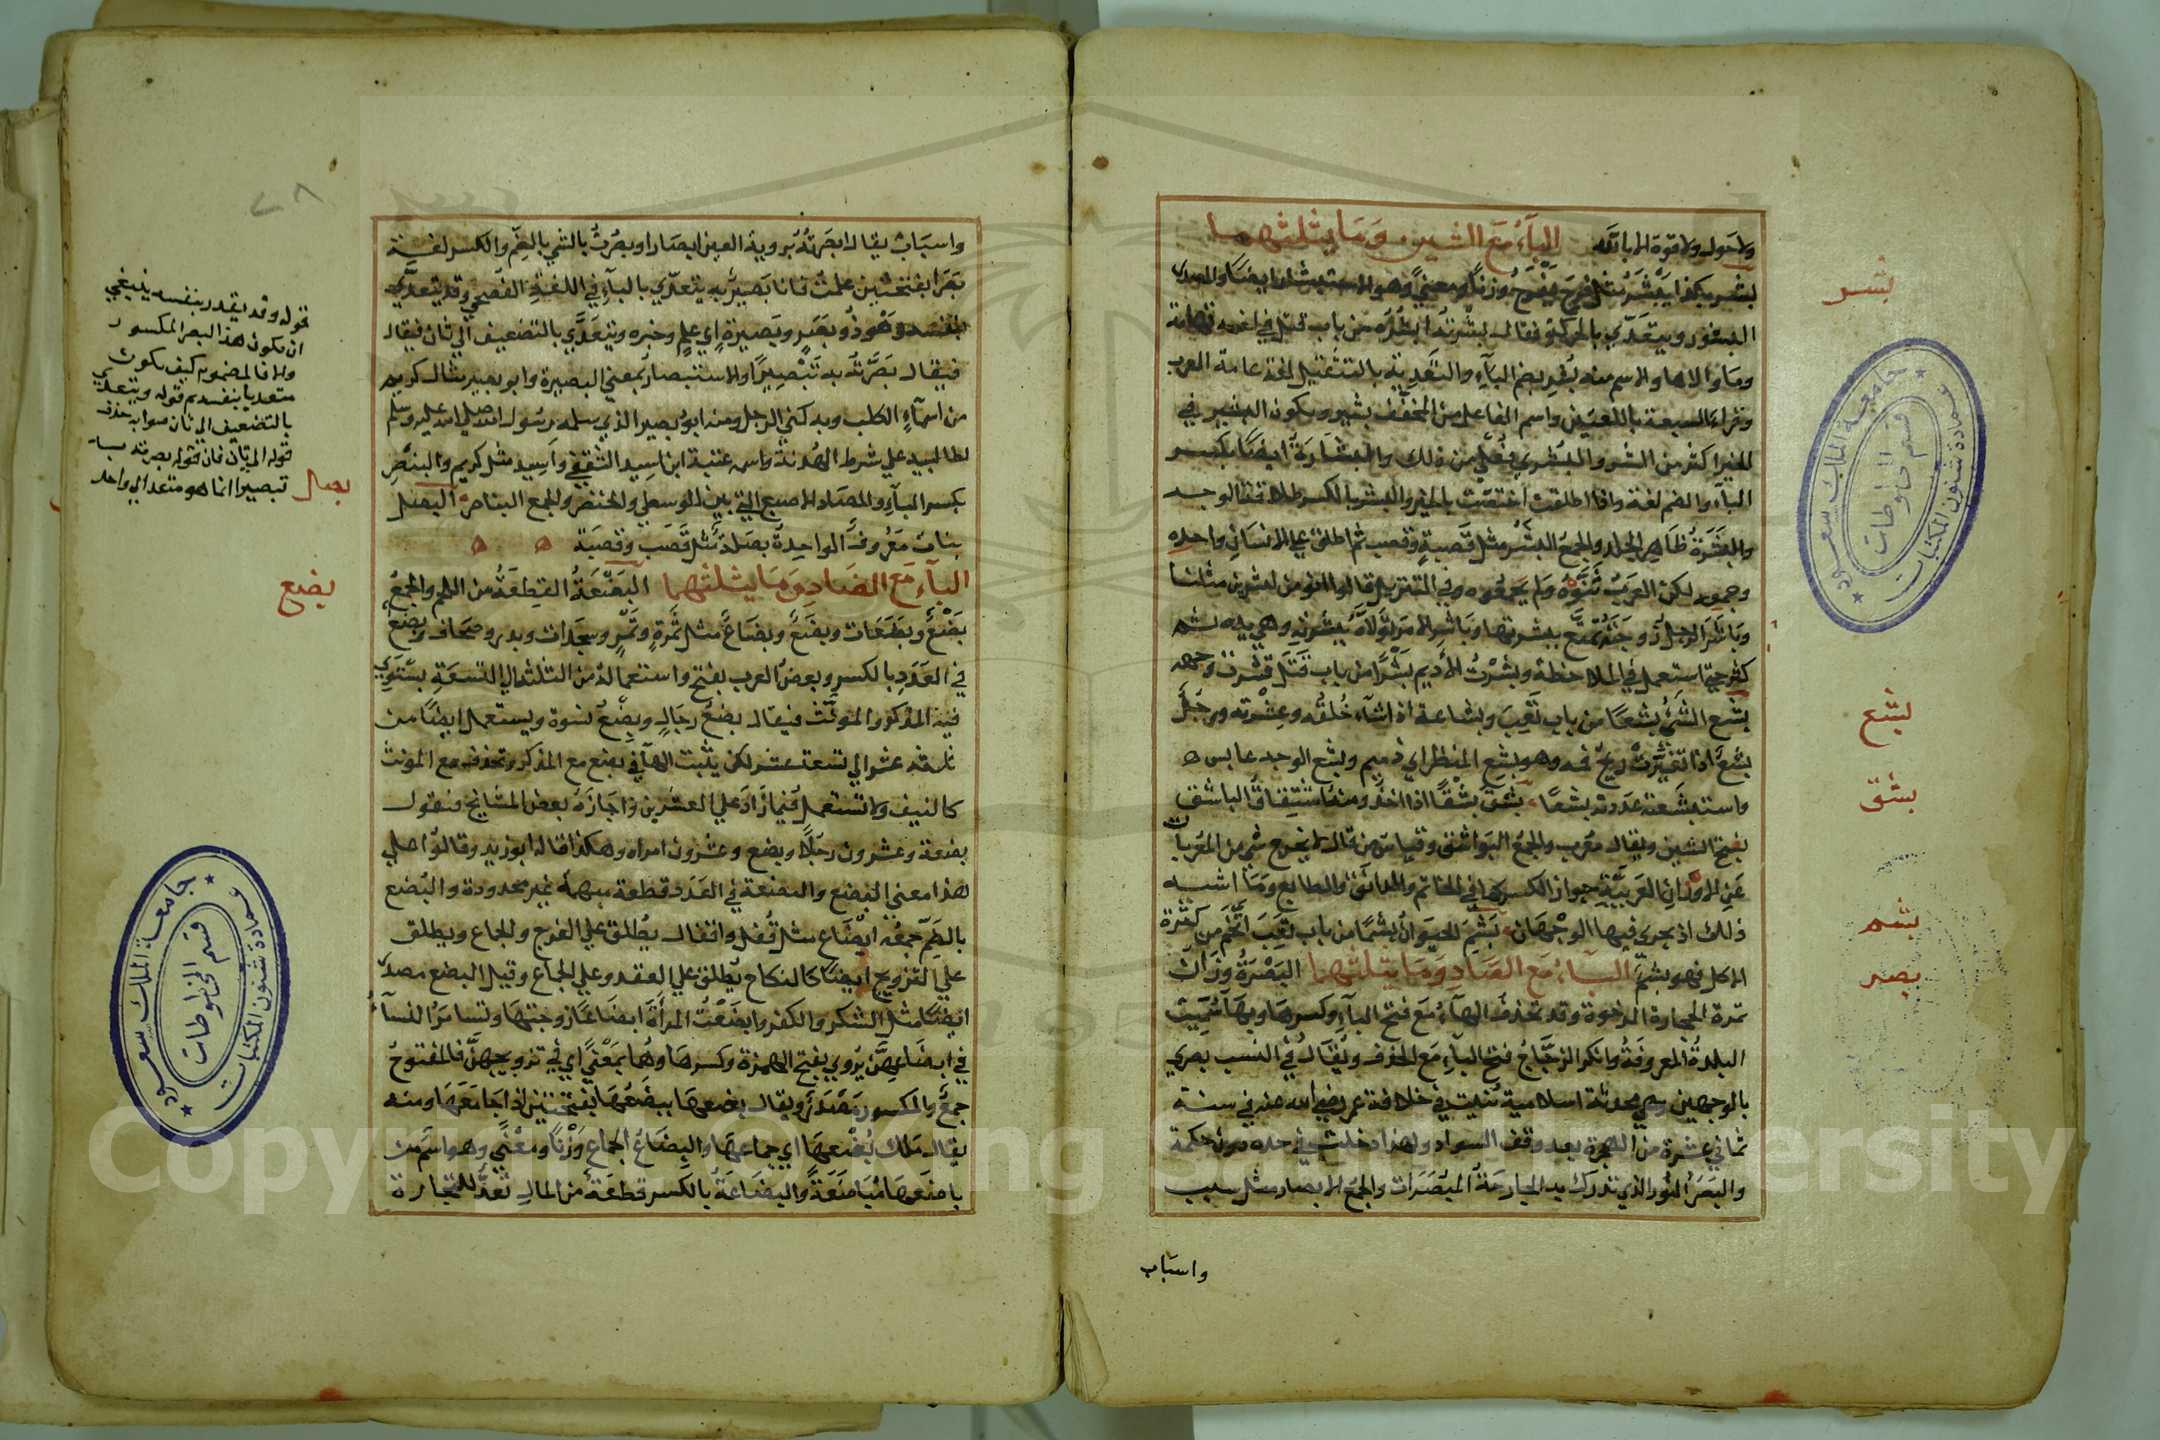 ولا حول ولا قوة الا بالله الباء مع الشين وما يثلثهما
بشر بكذا يبشر مثل فرح يفرح وزنا ومعنى وهو الاستبشار ايضا والمصدر
البشور ويتعدى بالحركة فيقال بشرته ابشره من باب قتل في لغة تهامة
وما والاها والاسم منه بشر بضم الباء والتعدية بالتثقيل لغة عامة العرب
وقراء السبعة باللغتين واسم الفاعل من المخفف بشير ويكون البشير في
الخير اكثر من الشر والبشرى فعلى من ذلك والبشارة ايضا بكسر
الباء والضم لغة واذا اطلقت اختصت بالخير والبشر بالكسر طلاقة الوجه
والبشرة ظاهر الجلد والجمع البشر مثل قصبة وقصب ثم اطلق على الانسان واحده
وجمعه لكن العرب ثنوه ولم يجمعوه وفي التنزيل قالوا انؤمن لبشرين مثلنا
وباشر الرجل زوجته تمتع ببشرتها وباشر الامر تولاه ببشرته وهي يده ثم
كثر حتى استعمل في الملاحظة وبشرت الاديم بشرا من باب قتل قشرت وجهه
بشع الشئ بشعا من باب تعب وبشاعة اذا ساء خلقه وعشرته ورجل
بشع اذا تغيرت ريح فمه وهو بشع المنظر اي دميم وبشع الوجه عابس ه
واستبشعته عددته بشعا بشق بشقا اذا اخذ ومنه اشتقاق الباشق
بفتح الشين ويقال معرب والجمع البواشق وقياس من قال لا يخرج شئ من المعربات
عن الاوزان العربية جواز الكسر كما في الخاتم والدانق والطابع وما اشبه
ذلك اذ يجرى فيها الوجهان بشم الحيوان بشما من باب تعب اتخم من كثرة
الاكل فهو بشم الباء مع الصاد وما يثلثهما البصرة وزان
تمرة الحجارة الرخوة وقد تحذف الهاء مع فتح الباء وكسرها وبها سميت
البلدة المعروفة وانكر الزجاج فتح الباء مع الحذف ويقال في النسب بصري
بالوجهين وهي محدثة اسلامية بنيت في خلافة عمر رضي الله عنه في سنة
ثماني عشرة من الهجرة بعد وقف السواد ولهذا دخلت في حده دون حكمه
والبصر النور الذي تدرك به الجارحة المبصرات والجمع الابصار مثل سبب
واسباب
بشر
بشع
بشق
بشم
بصر
واسباب يقال ابصرته برؤية العين ابصارا وبصرت بالشي بالضم والكسر لغة
بصرا بفتحتين علمت فانا بصير به يتعدى بالباء في اللغة الفصحى وقد يتعدى
بنفسه وهو ذو بصر وبصيرة اي علم وخبره ويتعدى بالتضعيف الى ثان فيقال
فيقال بصرته به تبصيرا والاستبصار بمعنى البصيرة وابو بصير مثال كريم
من اسماء الكلب وبه كني الرجل ومنه ابو بصير الذي سلمه رسول الله صلى الله عليه وسلم
لطالبيه على شرط الهدنة واسمه عتبة ابن اسيد الثقفي واسيد مثل كريم والبنصر
بكسر الباء والصاد الاصبع التي بين الوسطى والخنصر والجمع البناصر البصل
نبات معروف الواحدة بصلة مثل قصب وقصبة ه ه
الباء مع الضاد وما يثلثهما البضعة القطعة من اللحم والجمع
بضع وبضعات وبضع وبضاع مثل تمرة وتمر وسجدات وبدر وصحاف وبضع
في العدد بالكسر وبعض العرب يفتح واستعماله من الثلثة الى التسعة يستوي
فيه المذكر والمونث فيقال بضع رجال وبضع نسوة ويستعمل ايضا من
ثلاثه عشر الى تسعة عشر لكن يثبت الهاء في بضع مع المذكر وتحذف مع المونث
كالنيف ولا تستعمل فيما زاد على العشرين واجازه بعض المشايخ فيقول
بضعة وعشرون رجلا وبضع وعشرون امراه وهكذا قاله ابو زيد وقالوا على
هذا معنى البضع والبضعة في العدد قطعة مبهمة غير محدودة والبضع
بالضم جمعه ابضاع مثل قفل واقفال يطلق على الفرج والجماع ويطلق
على التزويج ايضا كالنكاح يطلق على العقد وعلى الجماع وقيل البضع مصدر
ايضا مثل الشكر والكفر وابضعت المرأة ابضاعا زوجتها وتستامر النساء
في ابضاعهن يروى بفتح الهمزة وكسرها وهما بمعنى اي في تزويجهن فالمفتوح
جمع والمكسور مصدر ويقال بضعها يبضعها بفتحتين اذا جامعها ومنه
يقال ملك بضعها اي جماعها والبضاع الجماع وزنا ومعنى وهو اسم من
باضعها مباضعة والبضاعة بالكسر قطعة من المال تعد للتجارة
قوله وقد يتعدى بنفسه ينبغي
ان يكون هذا البصر المكسور
والا فالمضموم كيف يكون
متعديا بنفسه ثم قوله ويتعدى
بالتضعيف الى ثان صوابه حذف
قوله الى ثان فان قوله بصرته به
تبصيرا انما هو متعد الى واحد
بصل
بضع
٢٨
جامعة الملك سعود
عمادة شئون المكتبات
قسم المخطوطات
جامعة الملك سعود
عمادة شئون المكتبات
قسم المخطوطات
Copyright © King Saud University